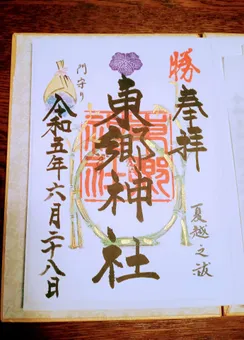 勝
奉拝
夏越之祓
東郷神社
門守り
令和五年六月二十八日